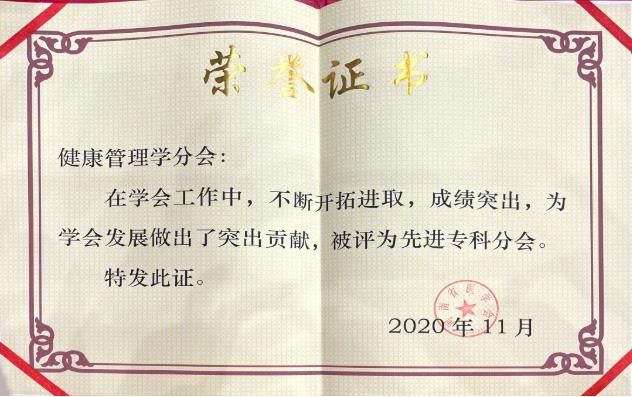 荣誉证书
健康管理学分会：
在学会工作中，不断开拓进取，成绩突出，为
学会发展做出了突出贡献，被评为先进专科分会。
特发此证。
省医学会
2020 年 11 月